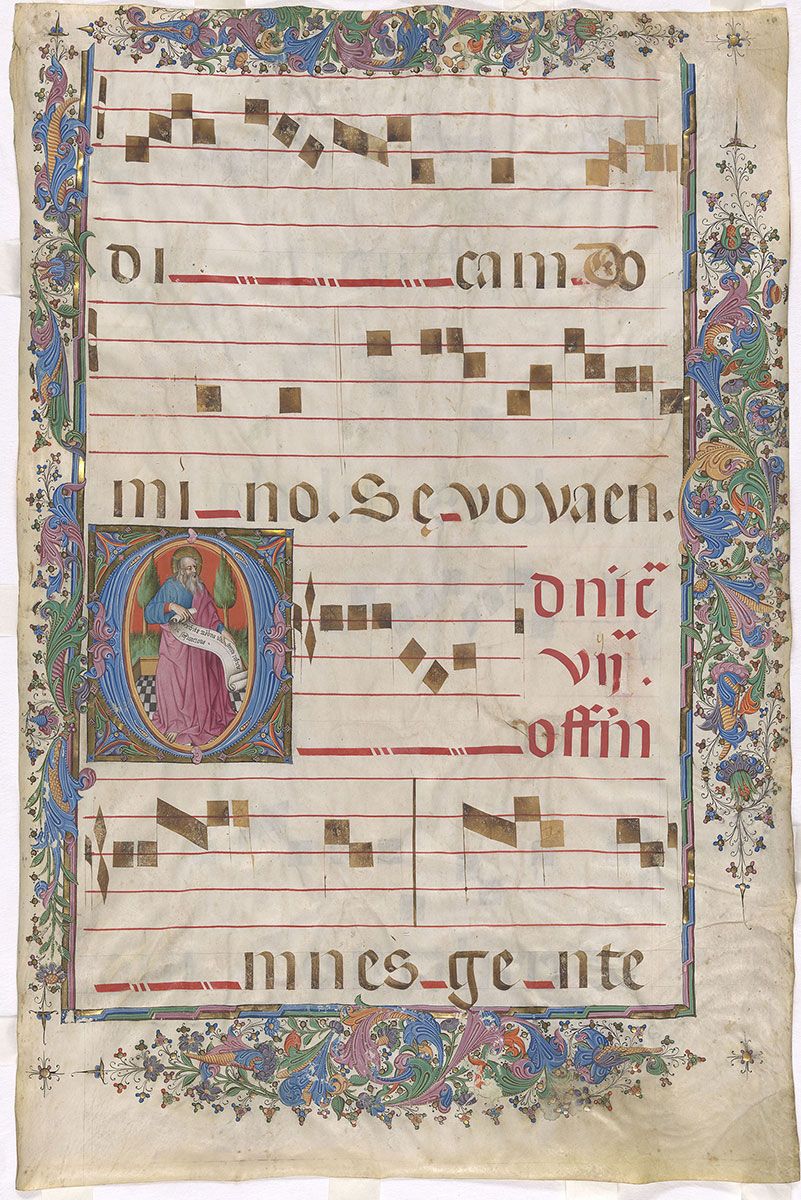 di cam do
mi no. Sę vovaen.
O
dnic̄
vij̄.
offin
mnes gente